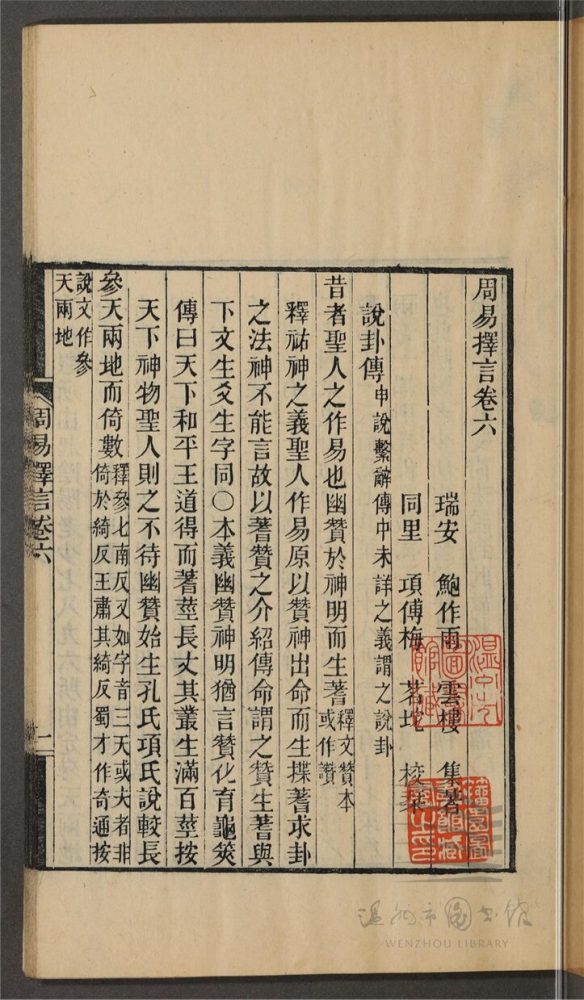 周易擇言卷六
瑞安　鮑作雨　雲樓　集著
同里　項傅梅　茗垞　校
說卦傳申說繫辭傳中未詳之義謂之說卦
昔者聖人之作易也幽贊於神明而生蓍釋文贊本或作讚
釋祐神之義聖人作易原以贊神出命而生揲蓍求卦
之法神不能言故以蓍贊之介紹傳命謂之贊生蓍與
下文生爻生字同○本義幽贊神明猶言贊化育龜筴
傳曰天下和平王道得而蓍莖長丈其叢生滿百莖按
天下神物聖人則之不待幽贊始生孔氏項氏說較長
參天兩地而倚數釋參七南反又如字音三天或夫者非倚於綺反王肅其綺反蜀才作奇通按
說文作參天兩地
周易擇言卷六
一
溫州市圖書館
WENZHOU LIBRARY